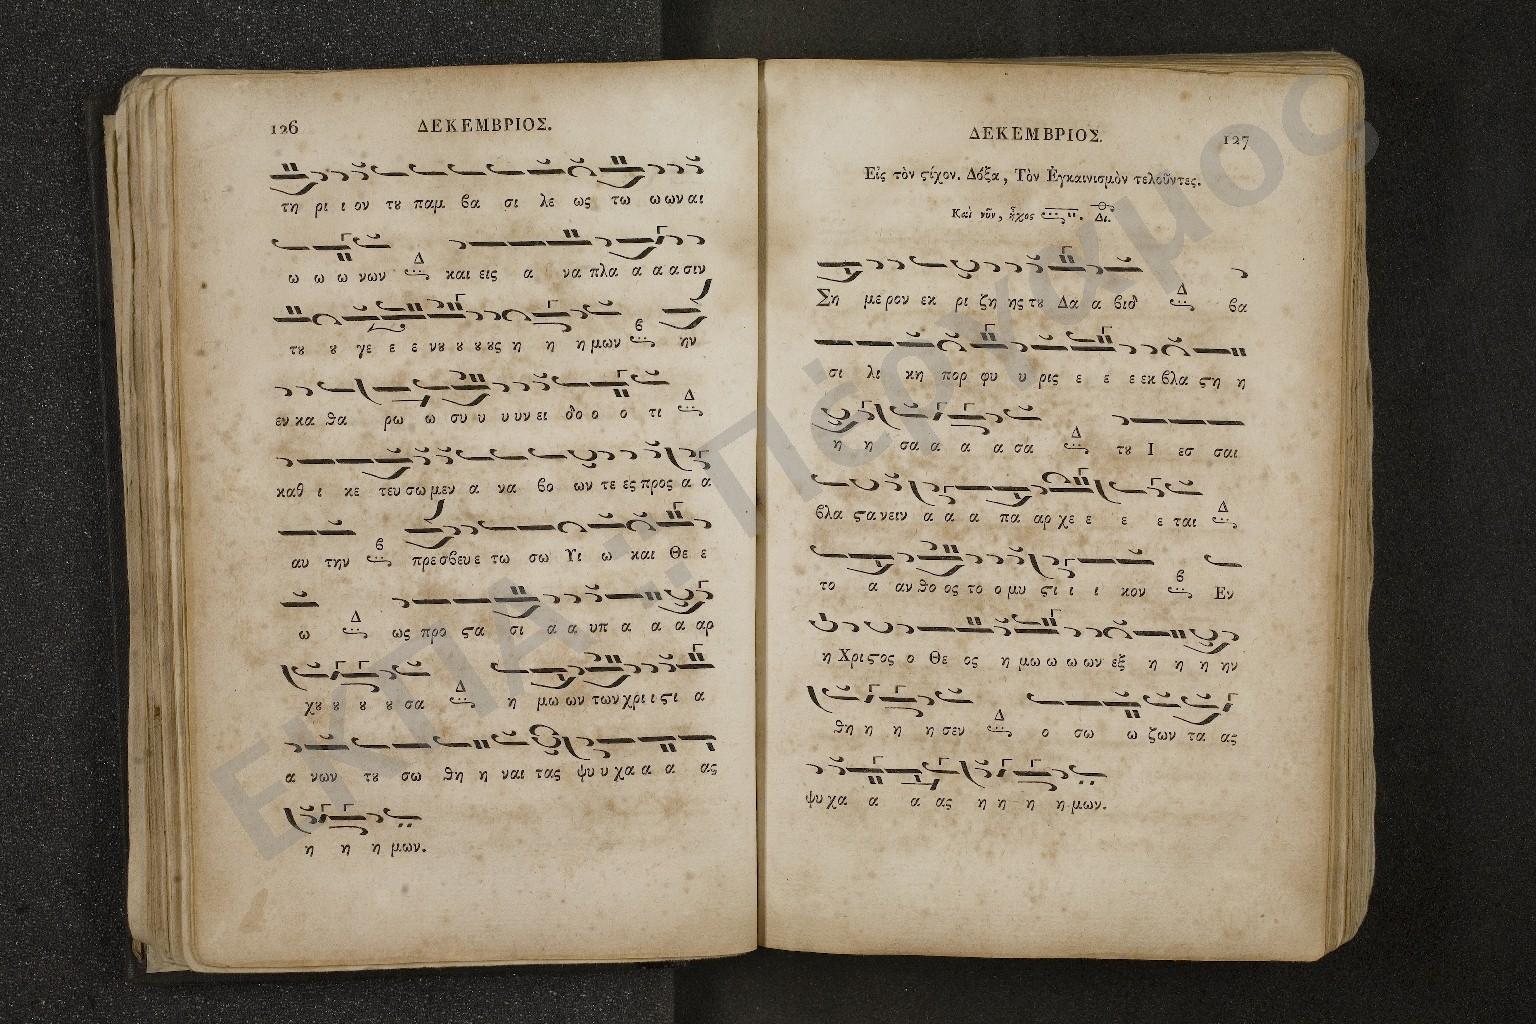 126
ΔΕΚΕΜΒΡΙΟΣ.
τη ρι ι ον τȣ παμ βα σι λε ως τω ω ων αι
ω ω ω νων Δ και εις α να πλα α α α σιν
τȣ ȣ γε ε ε νȣ ȣ ȣ ȣς η η η μων β ην
εν κα θα ρω ω συ υ υ υν ει δο ο ο τι Δ
καθ ι κε τευ σω μεν α να βο ων τε ες προς α α
αυ την β πρεσβευε τω σω Υι ω και Θε ε
ω Δ ως προ ϛα σι α α υπ α α α αρ
χȣ ȣ ȣ ȣ σα Δ η μω ων των χρι ι ϛι α
α νων τȣ σω θη η ναι τας ψυ υ χα α α ας
η η η μων.
ΔΕΚΕΜΒΡΙΟΣ.
127
Εἰς τὸν ϛίχον. Δόξα, Τὸν Ἐγκαινισμὸν τελοῦντες.
Καὶ νῦν, ἦχος Δι.
Ση με ρον εκ ρι ζη ης τȣ Δα α βιδ Δ βα
σι λι κη πορ φυ υ ρις ε ε ε εκ βλα ϛη η
η η σα α α α σα Δ τȣ Ι εσ σαι
βλα ϛα νειν α α α πα αρ χε ε ε ε ται Δ
το α αν θο ος το ο μυ ϛι ι ι κον β Εν
η Χρι ϛος ο Θε ος η μω ω ω ων εξ η η η ην
θη η η η σεν Δ ο σω ω ζων τα ας
ψυ χα α α ας η η η η μων.
ΕΚΠΑ - Πέργαμος